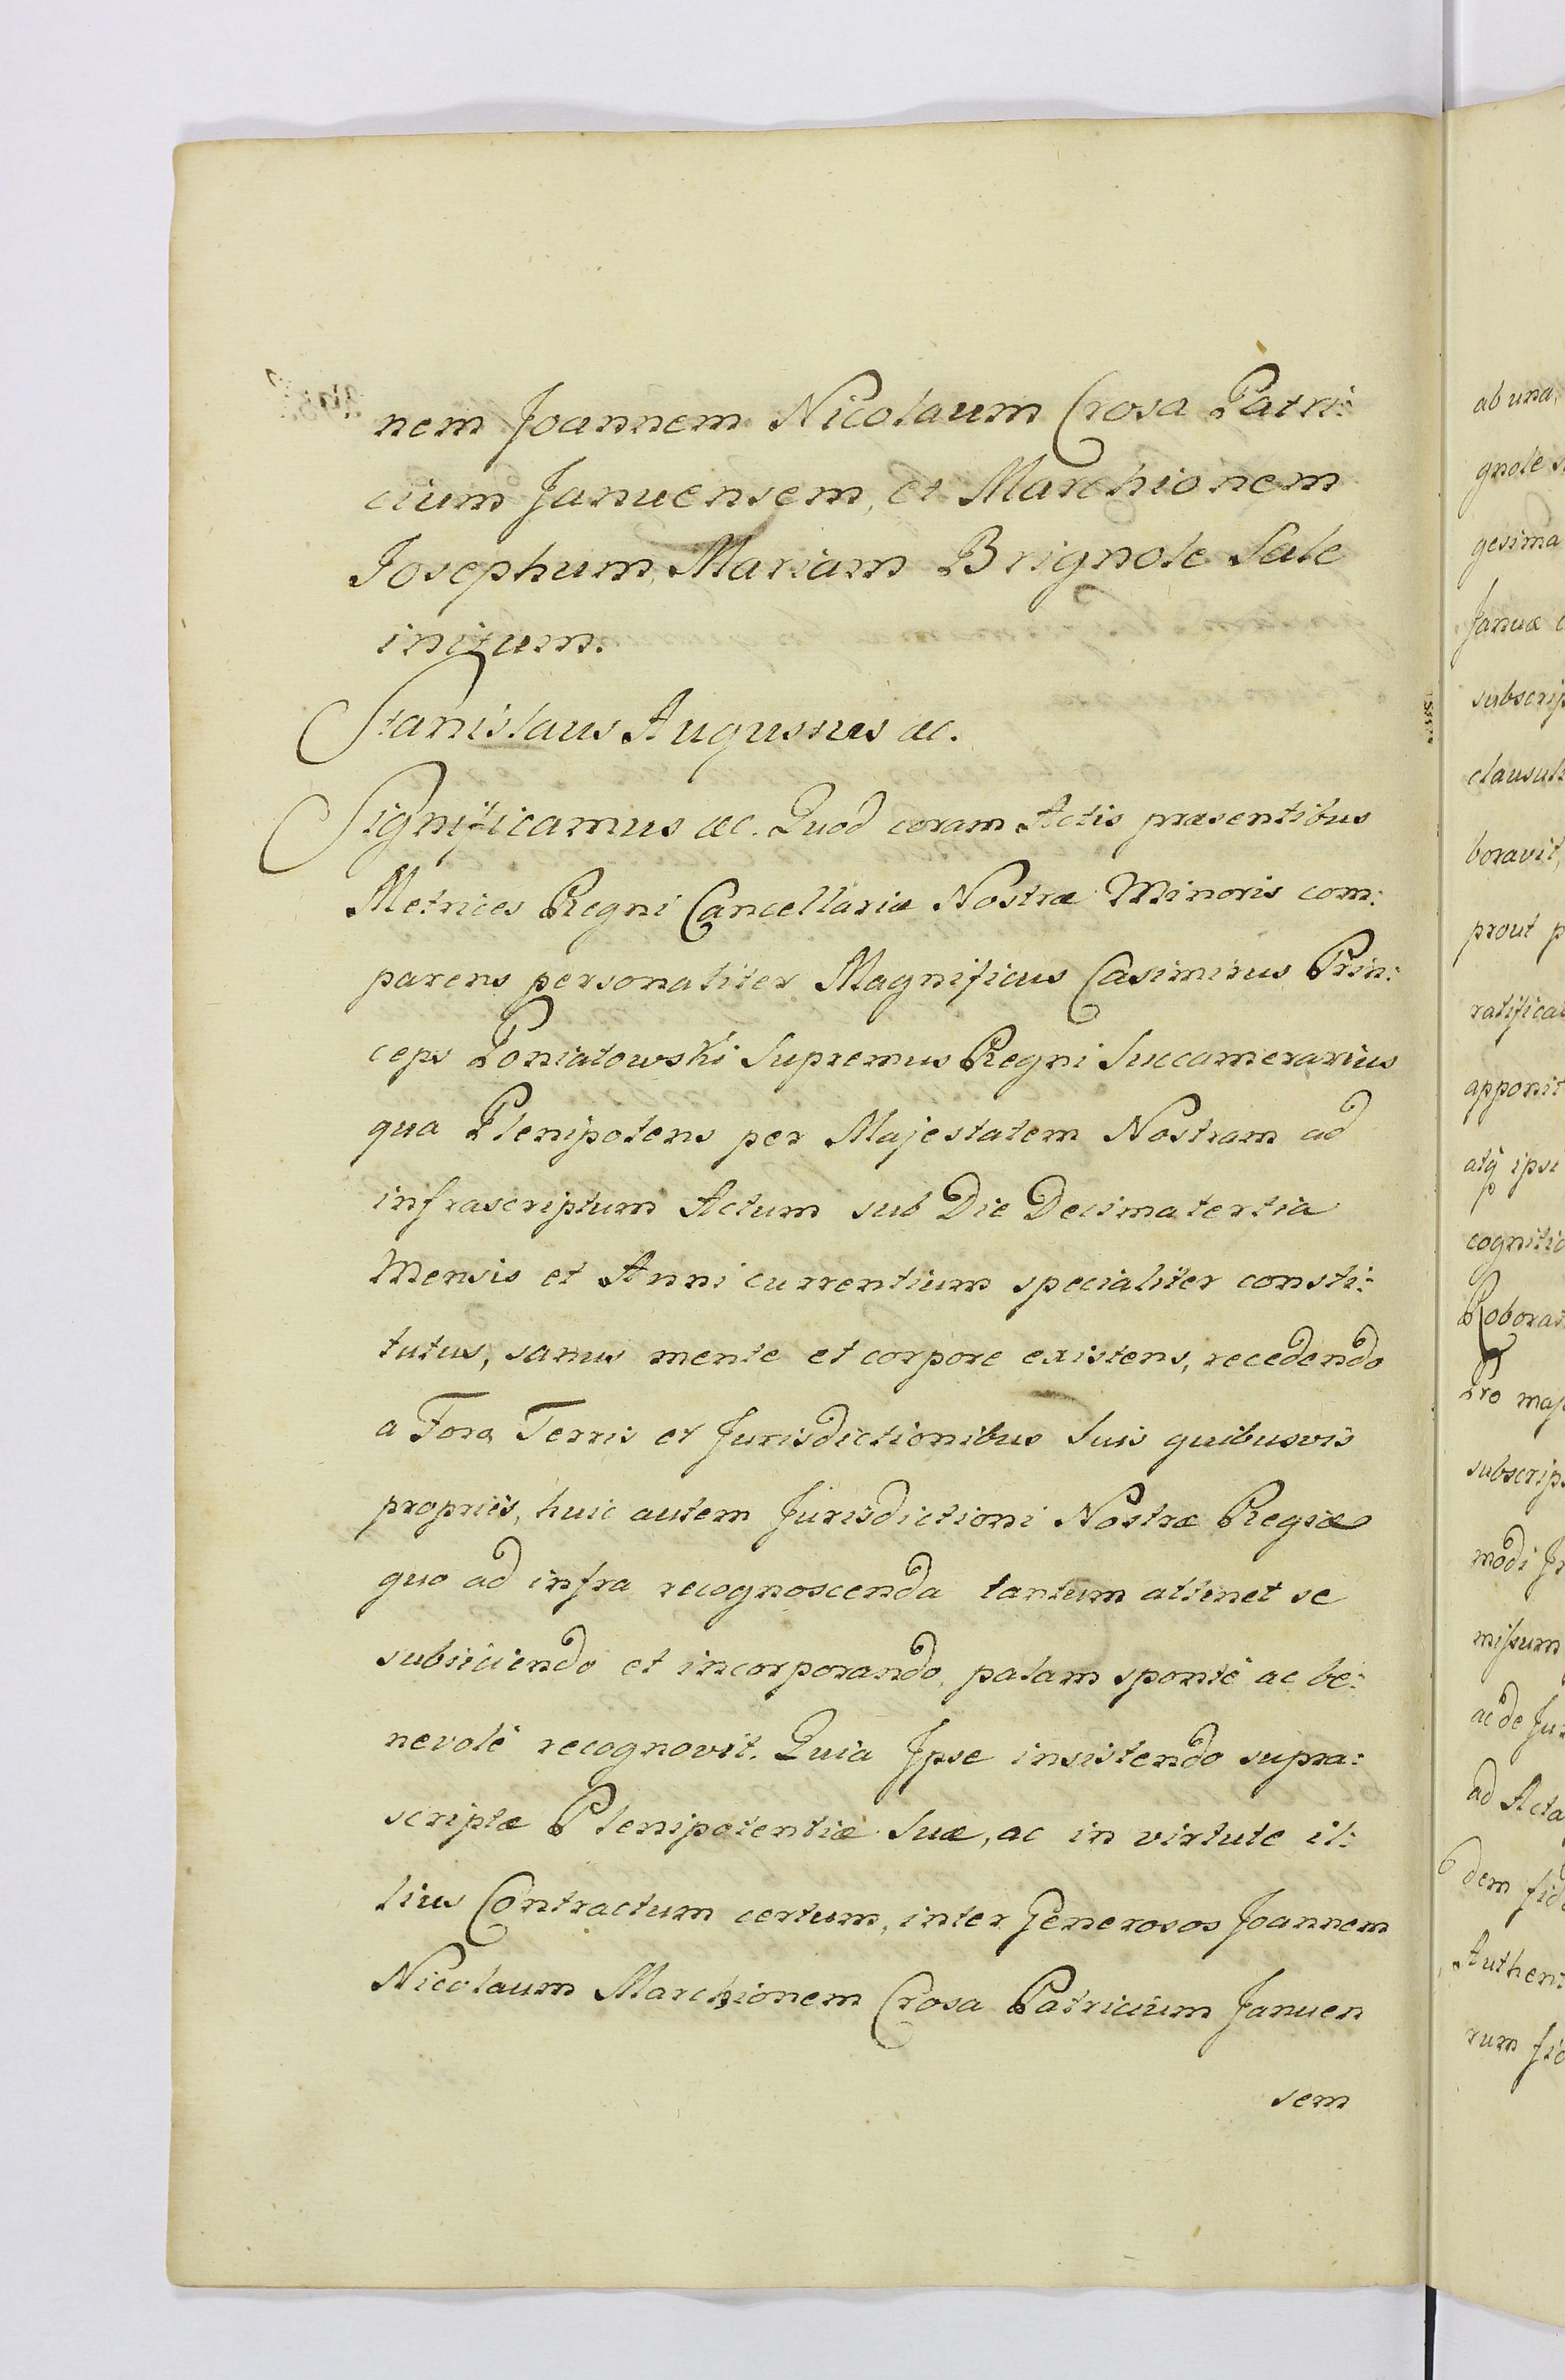 nem Joannem Nicolaum Crosa Patri:
cium Januensem, et Marchionem
Josephum Mariam Brignole Sale
initum.
Stanislaus Augustus &c.
Significamus &c. Quod coram Actis præsentibus
Metrices Regni Cancellariæ Nostræ Minoris com:
parens personaliter Magnificus Casimirus Prin:
ceps Poniatowski Supremus Regni Succamerarius
qua Plenipotens per Majestatem Nostram ad
infrascriptum Actum sub Die Decima tertia
Mensis et Anni currentium specialiter consti:
tutus, sanus mente et corpore existens, recedendo
a Foro Terris et Jurisdictionibus Suis quibusvis
propriis, huic autem Jurisdictioni Nostræ Regiæ
quo ad infra recognoscenda tantum attinet se
subiiciendo et incorporando, palam sponte ac be:
nevolè recognovit. Quia Ipse insistendo supra:
scriptæ Plenipotentiæ Suæ, ac in virtute il:
lius Contractum certum, inter Generosos Joannem
Nicolaum Marchionem Crosa Patricium Januen
sem
ab una
gnole
gesima
Januæ
subscrip
clausul
boravit,
prout
ratifica
apponit
atq ipsi
cognitio
Roborat
Pro maj
subscrip
modi
missum
ac de Ju
ad Acta
dem fid
Authen
rum fid